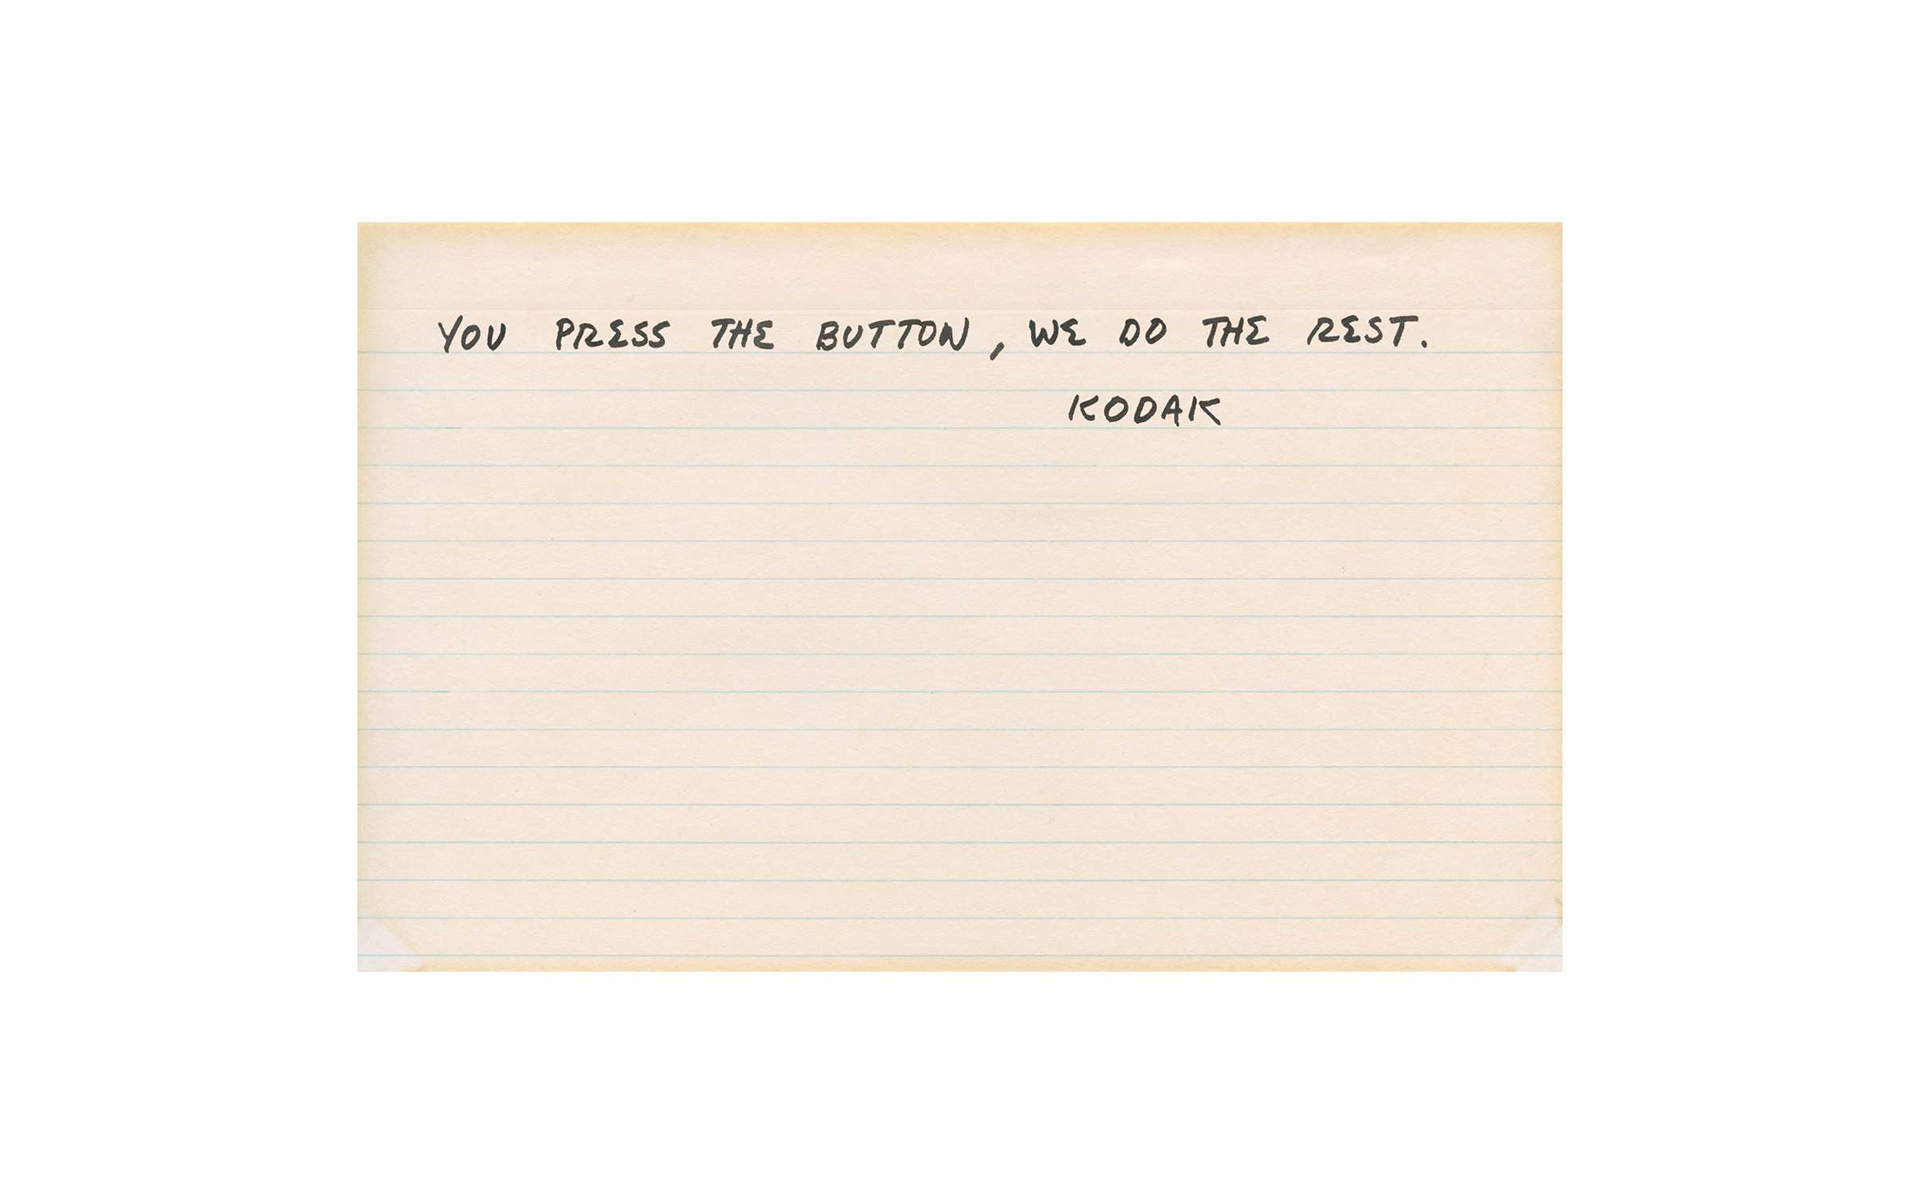 YOU PRESS THE BUTTON, WE DO THE REST.
KODAK